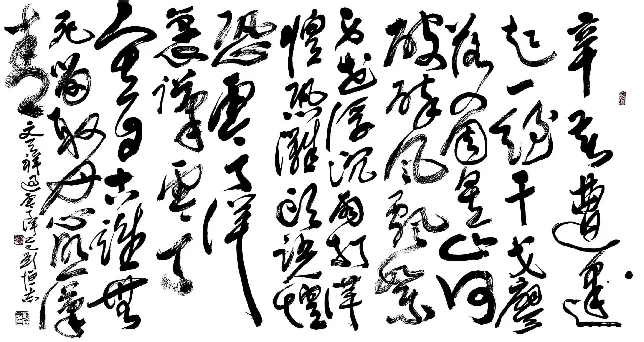 辛苦遭逢
起一经干戈寥
落四周星山河
破碎风飘絮
身世浮沉雨打萍
惶恐滩头说惶
恐零丁洋
里叹零丁
人生自古谁無
死留取丹心照汗
青
文天祥过零丁洋